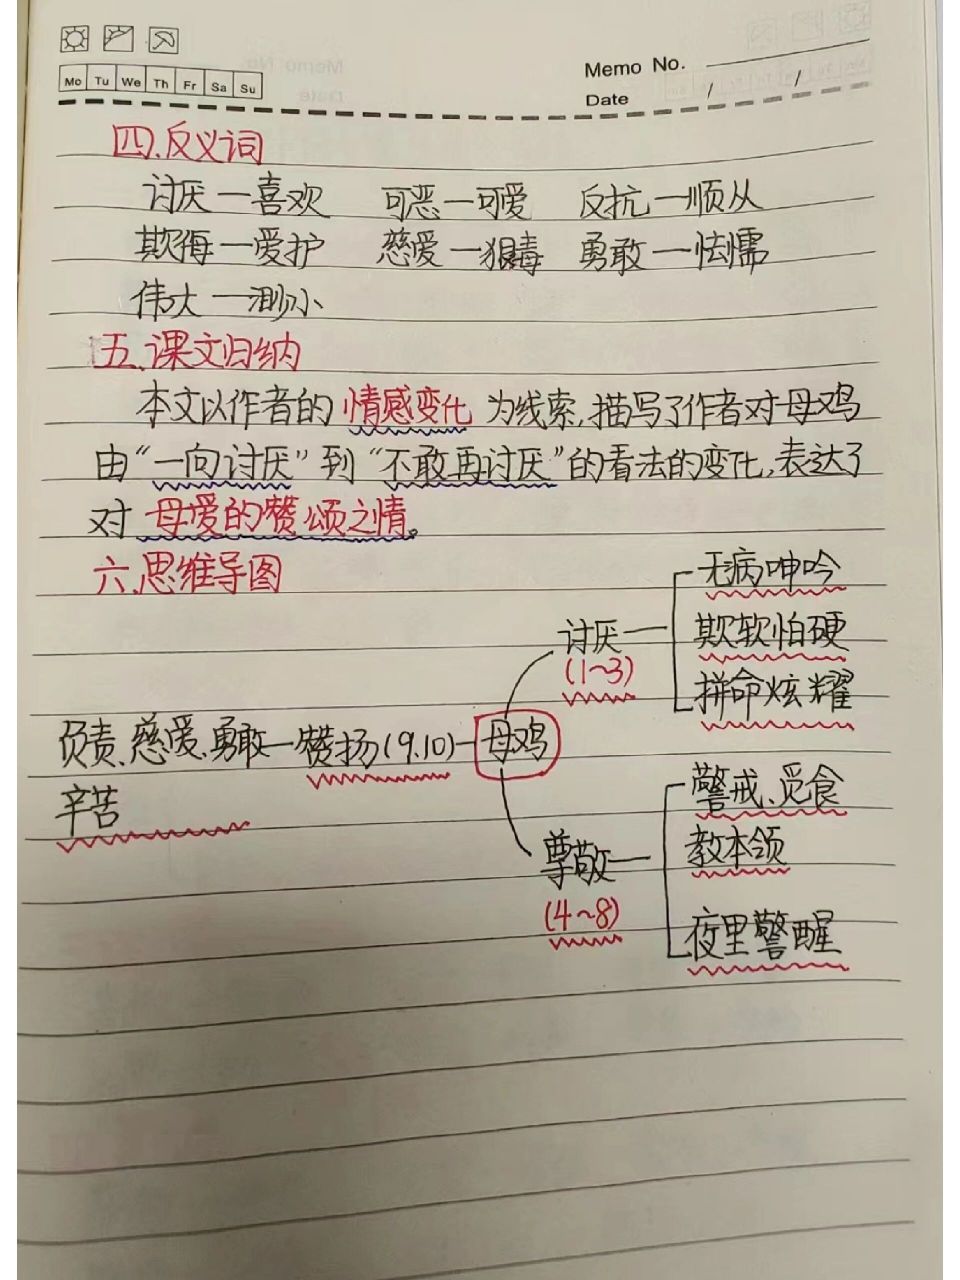 Mo Tu We Th Fr Sa Su
Memo No.
Date / /
四.反义词
讨厌—喜欢 可恶—可爱 反抗—顺从
欺侮—爱护 慈爱—狠毒 勇敢—怯懦
伟大—渺小
五.课文归纳
本文以作者的情感变化为线索,描写了作者对母鸡
由“一向讨厌”到“不敢再讨厌”的看法的变化,表达了
对母爱的赞颂之情。
六.思维导图
无病呻吟
讨厌
欺软怕硬
(1~3)
拼命炫耀
负责、慈爱、勇敢—赞扬(9.10)—母鸡
辛苦
警戒、觅食
尊敬
教本领
(4~8)
夜里警醒